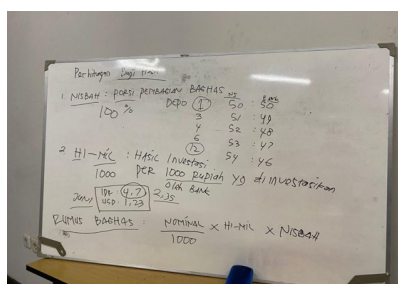 Perhitungan Bagi Hasil
1. NISBAH : PORSI PEMBAGIAN BAGHAS NS : BANK
100 % DEPO 1 50 : 50
3 51 : 49
4 52 : 48
6 53 : 47
12 54 : 46
2. HI-MIL : HASIL Investasi
1000 PER 1000 RUPIAH yg diinvestasikan
oleh BANK
Juni IDR 4,7 2,35
USD 1,23
RUMUS BAGHAS : NOMINAL × HI-MIL × NISBAH
1000